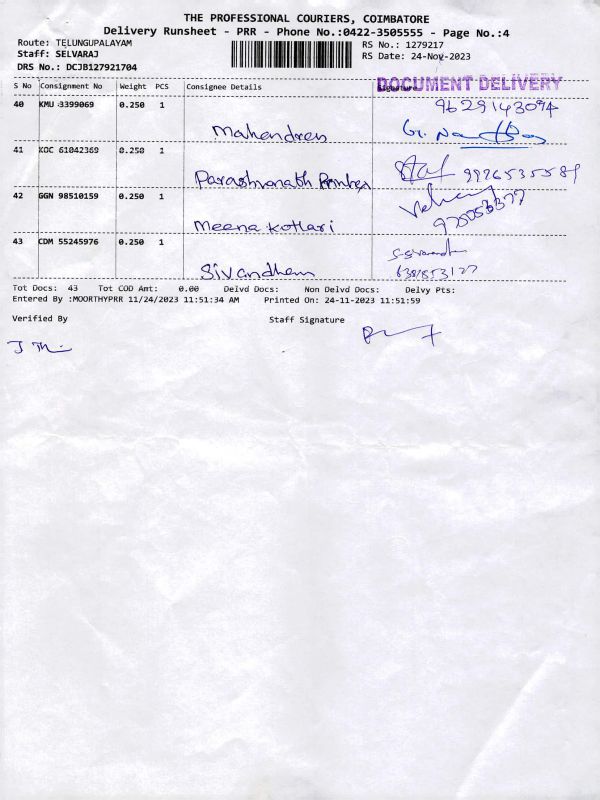 THE PROFESSIONAL COURIERS, COIMBATORE
Delivery Runsheet - PRR - Phone No.:0422-3505555 - Page No.:4
Route: TELUNGUPALAYAM
RS No.: 1279217
Staff: SELVARAJ
RS Date: 24-Nov-2023
DRS No.: DCJB127921704
DOCUMENT DELIVERY
S No Consignment No Weight PCS Consignee Details Signature
40 KMU 3399069 0.250 1 9629143094
Mahendren
41 KOC 61042369 0.250 1
Parashvanath Printex 9976535589
42 GGN 98510159 0.250 1
Meena Kothari
43 CDM 55245976 0.250 1
Sivandham
Tot Docs: 43 Tot COD Amt: 0.00 Delvd Docs: Non Delvd Docs: Delvy Pts:
Entered By :MOORTHYPRR 11/24/2023 11:51:34 AM Printed On: 24-11-2023 11:51:59
Verified By Staff Signature